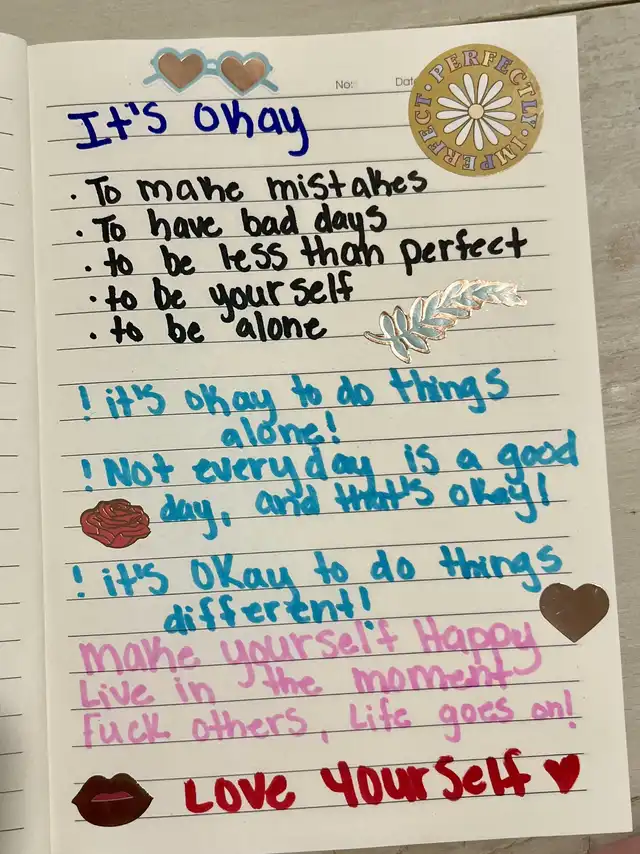 No:
Date
PERFECTLY · IMPERFECT ·
It's Okay
· To make mistakes
· To have bad days
· to be less than perfect
· to be yourself
· to be alone
! it's okay to do things
alone!
! Not every day is a good
day, and that's okay!
! it's Okay to do things
different!
Make yourself Happy
Live in the moment
Fuck others, Life goes on!
Love Yourself ♥